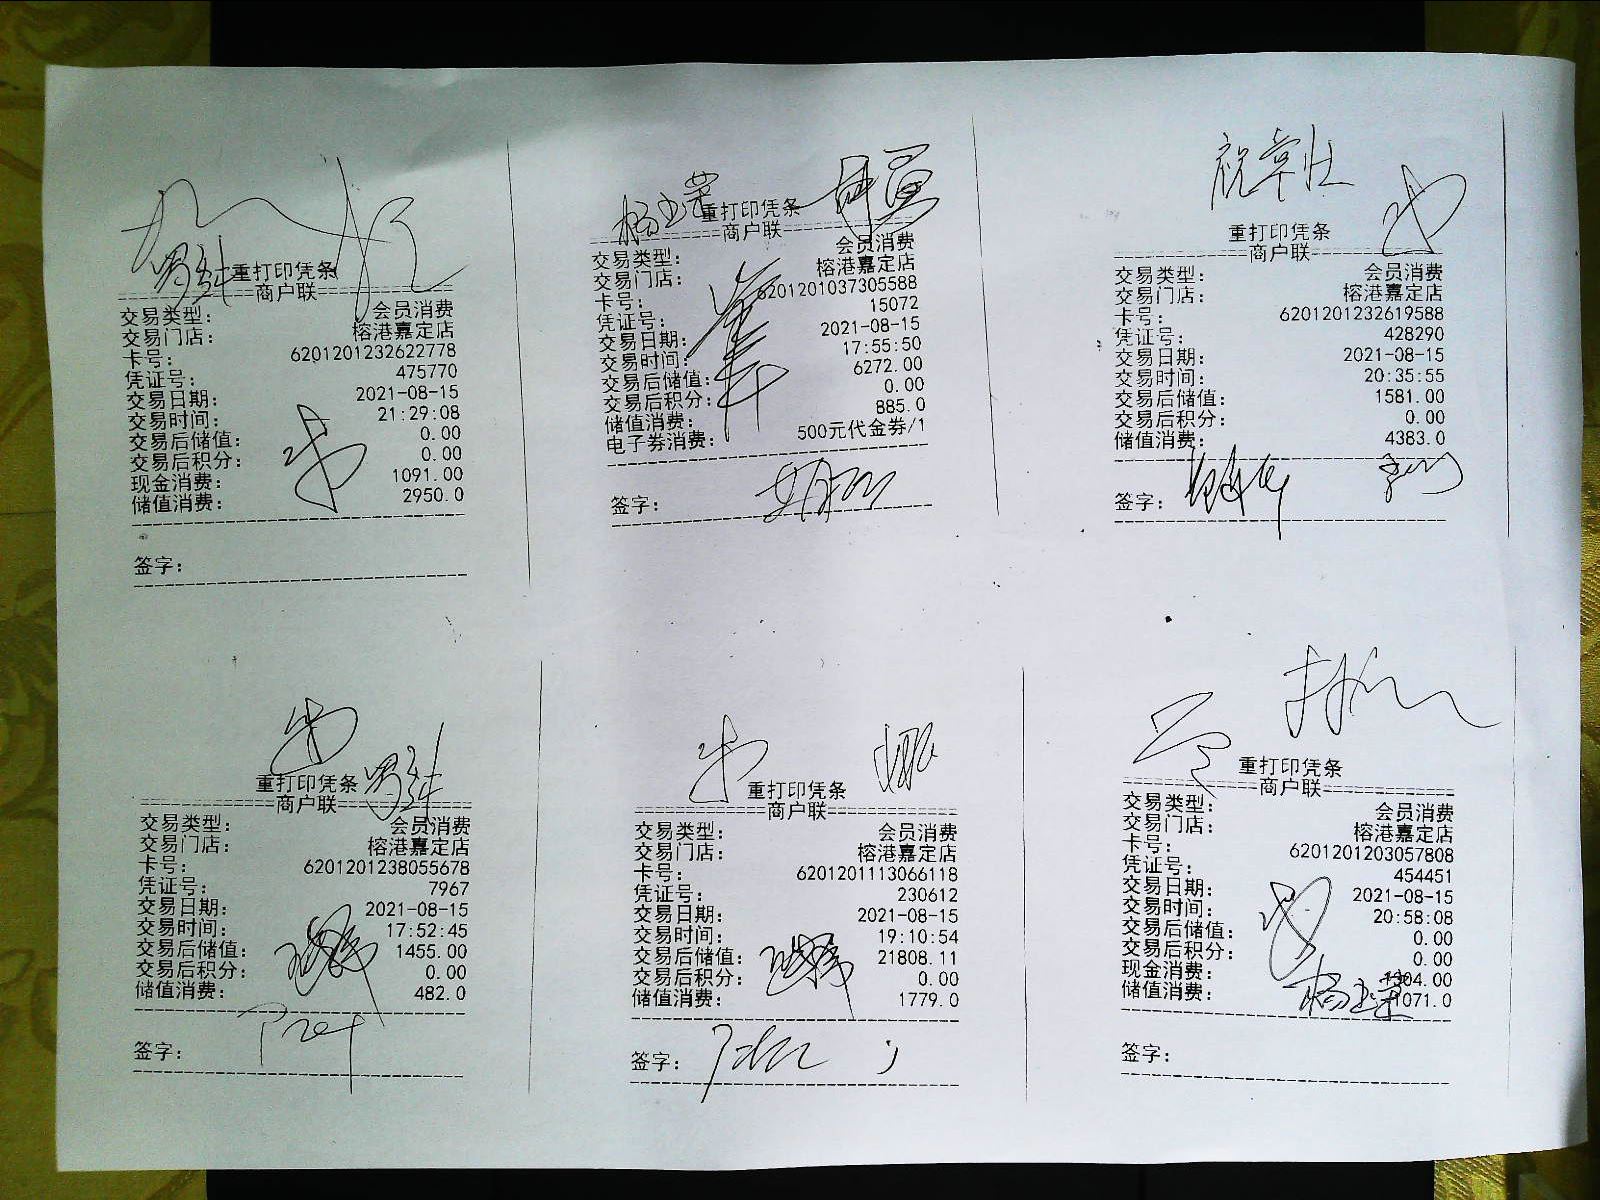 重打印凭条
商户联
交易类型: 会员消费
交易门店: 榕港嘉定店
卡号: 6201201232622778
凭证号: 475770
交易日期: 2021-08-15
交易时间: 21:29:08
交易后储值: 0.00
交易后积分: 0.00
现金消费: 1091.00
储值消费: 2950.0
签字:
重打印凭条
商户联
交易类型: 会员消费
交易门店: 榕港嘉定店
卡号: 6201201037305588
凭证号: 15072
交易日期: 2021-08-15
交易时间: 17:55:50
交易后储值: 6272.00
交易后积分: 0.00
储值消费: 885.0
电子券消费: 500元代金券/1
签字:
重打印凭条
商户联
交易类型: 会员消费
交易门店: 榕港嘉定店
卡号: 6201201232619588
凭证号: 428290
交易日期: 2021-08-15
交易时间: 20:35:55
交易后储值: 1581.00
交易后积分: 0.00
储值消费: 4383.0
签字:
重打印凭条
商户联
交易类型: 会员消费
交易门店: 榕港嘉定店
卡号: 6201201238055678
凭证号: 7967
交易日期: 2021-08-15
交易时间: 17:52:45
交易后储值: 1455.00
交易后积分: 0.00
储值消费: 482.0
签字:
重打印凭条
商户联
交易类型: 会员消费
交易门店: 榕港嘉定店
卡号: 6201201113066118
凭证号: 230612
交易日期: 2021-08-15
交易时间: 19:10:54
交易后储值: 21808.11
交易后积分: 0.00
储值消费: 1779.0
签字:
重打印凭条
商户联
交易类型: 会员消费
交易门店: 榕港嘉定店
卡号: 6201201203057808
凭证号: 454451
交易日期: 2021-08-15
交易时间: 20:58:08
交易后储值: 0.00
交易后积分: 0.00
现金消费:
储值消费:
签字: